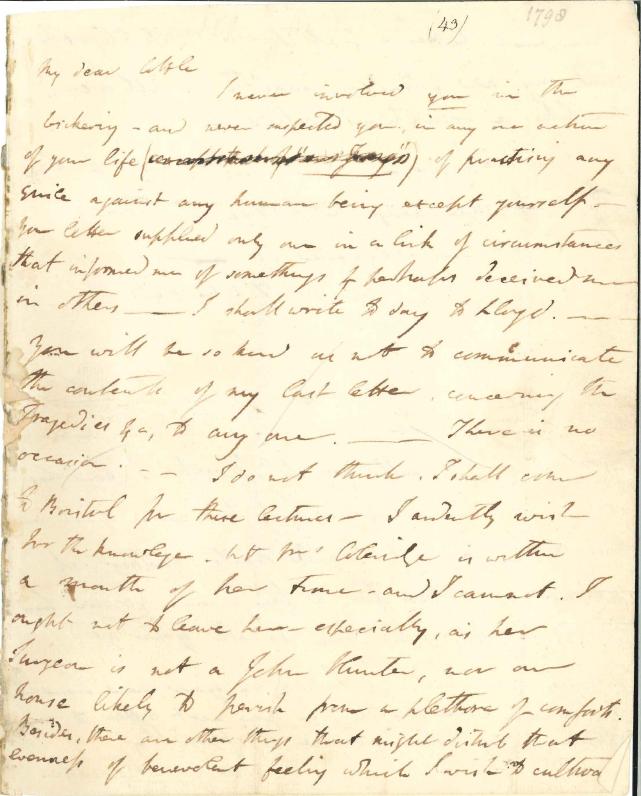 (43)
1798
My dear Cottle
I never involved you in the
bickering - and never suspected you, in any one action
of your life ( ) of practising any
guile against any human being except yourself. -
Your letter supplied only one in a link of circumstances
that informed me of some things & perhaps deceived me
in others —— I shall write to day to Lloyd. — —
You will be so kind as not to communicate
the contents of my last letter, concerning the
Tragedies &c, to any one. —— There is no
occasion. - — I do not think, I shall come
to Bristol for these lectures - I ardently wish
for the knowlege - but Mrs Coleridge is within
a month of her time - and I cannot. I
ought not to leave her - especially, as her
Surgeon is not a John Hunter, nor our
house likely to perish from a plethora of comforts.
Besides, there are other things that might disturb that
evenness of benevolent feeling which I wish to cultiva